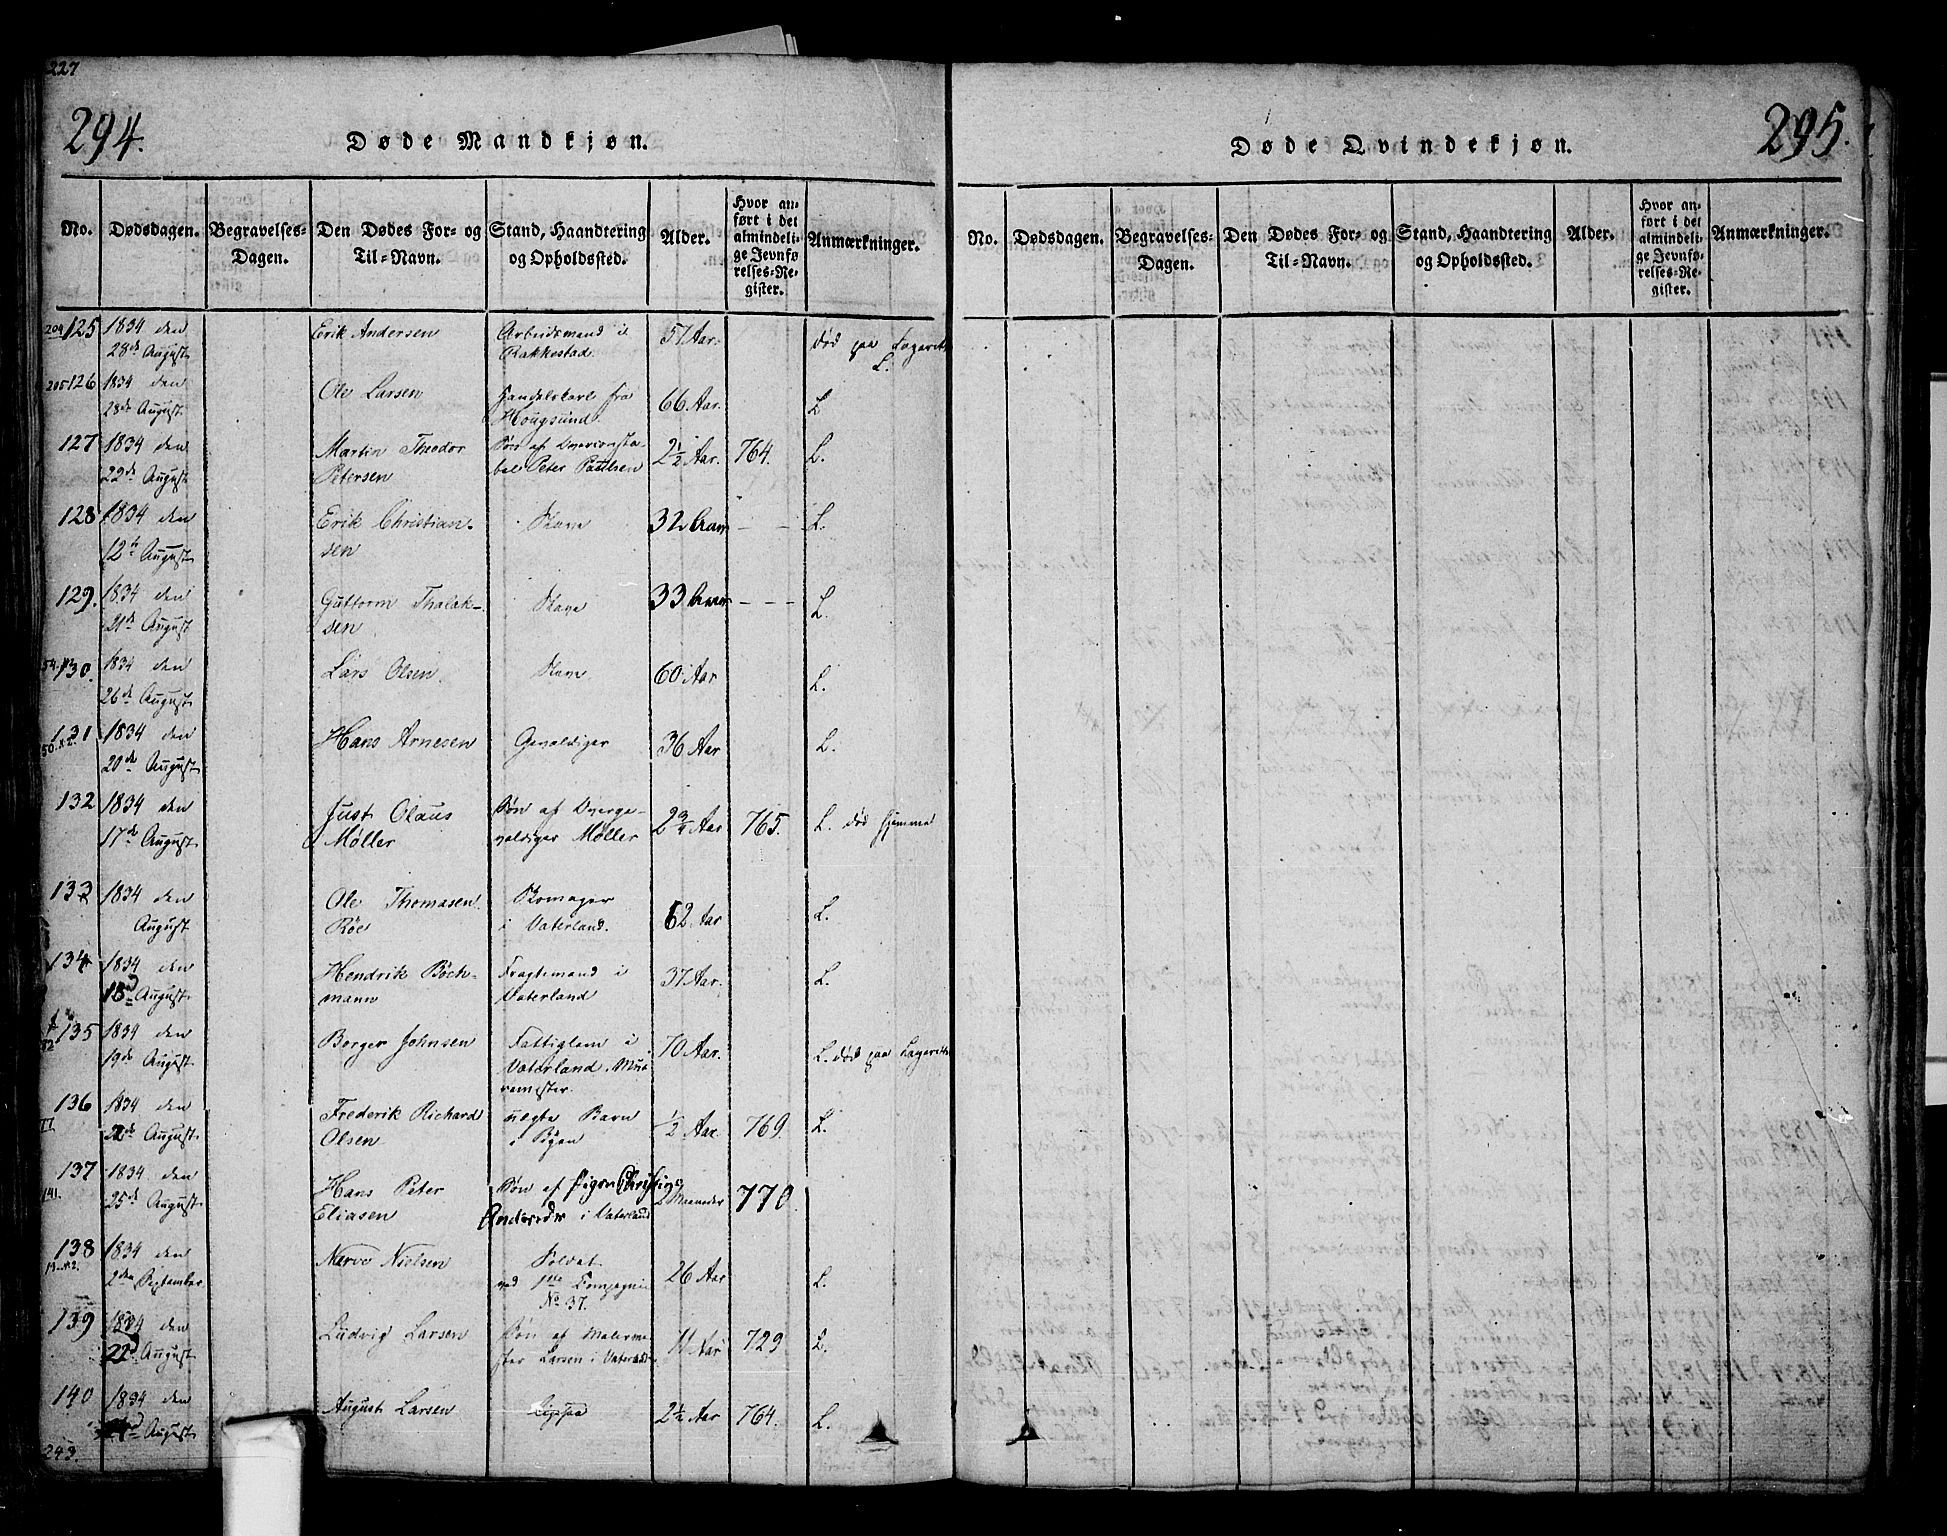 227
294.
Døde Mandkjøn.
No. Dødsdagen. Begravelses-Dagen. Den Dødes For- og Til-Navn. Stand, Haandtering og Opholdssted. Alder. Hvor anført i det almindelige Jevnførelses-Register. Anmærkninger.
204 125 1834 den Erik Andersen Arbeidsmand i 57 Aar. død paa Lazareth
28de August Rakkestad. L.
205 126 1834 den Ole Larsen Handelskarl fra 66 Aar. L
28de August Hougsund.
127 1834 den Martin Theodor Søn af 2½ Aar. 764. L.
22de August Petersen Peter Paulsen
128 1834 den Erik Christian- Slave 32 Aar - - L.
12te August sen
129. 1834 den Guttorm Thalak- Slave 33 Aar - - - L
21de August sen
130. 1834 den Lars Olsen. Slave 60 Aar L.
26de August
131 1834 den Hans Arnesen Gevaldiger 36 Aar L.
20de August
132 1834 den Just Olaus Søn af Overge- 2¾ Aar 765. L. død hjemme
17de August Møller valdiger Møller
133 1834 den Ole Thomasen Skomager 62 Aar L.
August Röe i Vaterland.
134 1834 den Hendrik Böch- Fragtemand i 37 Aar. L.
18d August mann Vaterland
135 1834 den Borger Johnsen Fattiglem i 70 Aar. L. død paa Lazareth
19de August Vaterland. Mur
remester.
136 1834 den Frederik Richard uægte Barn ½ Aar 769. L.
August Olsen i Byen
137 1834 den Hans Peter Søn af Pigen Maaneder 770
141. 25de August Eliasen i Vaterland
138 1834 den Narve Nielsen Soldat 26 Aar L.
2den September ved 1ste Compagnie
No 37.
139 1834 den Ludvig Larsen Søn af Malerme- 11 Aar 729. L.
August ster Larsen i Vaterland
140 1834 den August Larsen Ligesaa 2½ Aar 764. L.
August
243.
295.
Døde Qvindekjøn.
No. Dødsdagen. Begravelses-Dagen. Den Dødes For- og Til-Navn. Stand, Haandtering og Opholdssted. Alder. Hvor anført i det almindelige Jevnførelses-Register. Anmærkninger.